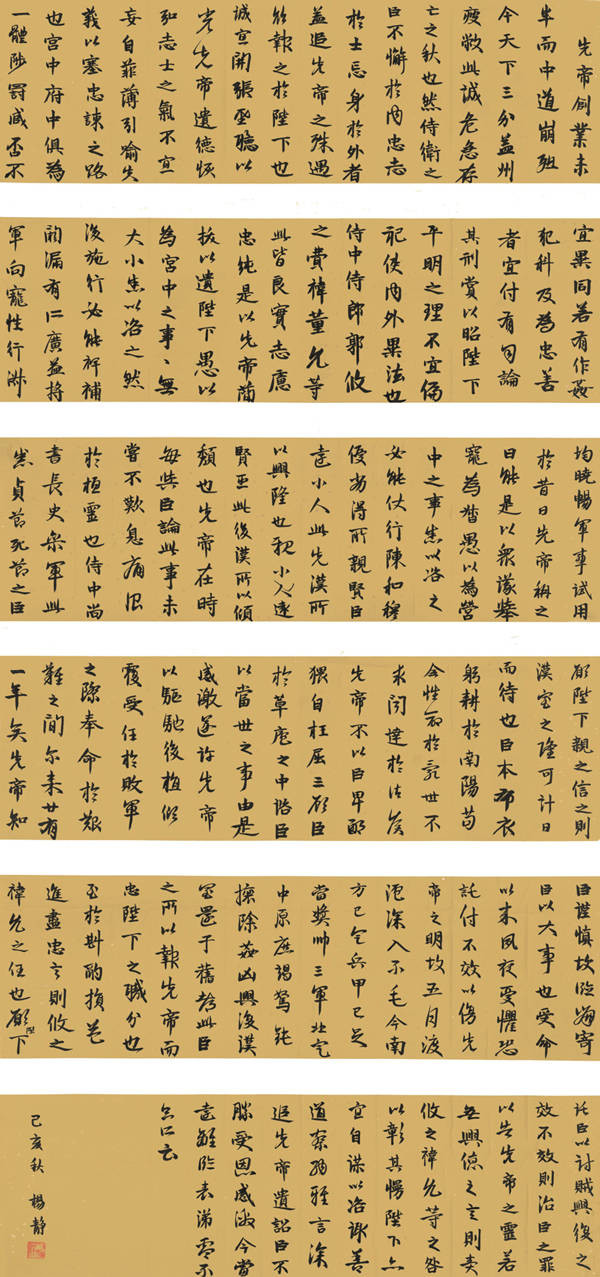 先帝創業未
半而中道崩殂
今天下三分益州
疲敝此誠危急存
亡之秋也然侍衛之
臣不懈於內忠志
於士忘身於外者
蓋追先帝之殊遇
欲報之於陛下也
誠宜開張聖聽以
光先帝遺德恢
弘志士之氣不宜
妄自菲薄引喻失
義以塞忠諫之路
也宮中府中俱為
一體陟罰臧否不
宜異同若有作姦
犯科及為忠善
者宜付有司論
其刑賞以昭陛下
平明之理不宜偏
私使內外異法也
侍中侍郎郭攸
之費禕董允等
此皆良實志慮
忠純是以先帝簡
拔以遺陛下愚以
為宮中之事、無
大小悉以咨之然
後施行必能裨補
闕漏有所廣益將
軍向寵性行淑
均曉暢軍事試用
於昔日先帝稱之
曰能是以眾議舉
寵為督愚以為營
中之事悉以咨之
必能使行陳和穆
優劣得所親賢臣
遠小人此先漢所
以興隆也親小人遠
賢臣此後漢所以傾
頹也先帝在時
每與臣論此事未
嘗不歎息痛恨
於桓靈也侍中尚
書長史參軍此
悉貞節死節之臣
願陛下親之信之則
漢室之隆可計日
而待也臣本布衣
躬耕於南陽苟
全性命於亂世不
求聞達於諸侯
先帝不以臣卑鄙
猥自枉屈三顧臣
於草廬之中諮臣
以當世之事由是
感激遂許先帝
以驅馳後值傾
覆受任於敗軍
之際奉命於艱
難之間尔来廿有
一年矣先帝知
臣謹慎故臨崩寄
臣以大事也受命
以来夙夜憂懼恐
託付不效以傷先
帝之明故五月渡
瀘深入不毛今南
方已定兵甲已足
當獎帥三軍北定
中原庶竭駑鈍
攘除姦凶興復漢
室還于舊都此臣
之所以報先帝而
忠陛下之職分也
至於斟酌損益
進盡忠言則攸之
禕允之任也願陛下
託臣以討賊興復之
效不效則治臣之罪
以告先帝之靈若
無興德之言則責
攸之禕允等之咎
以彰其慢陛下亦
宜自謀以咨諏善
道察納雅言深
追先帝遺詔臣不
勝受恩感激今當
遠離臨表涕零不
知所云
己亥秋 楊靜